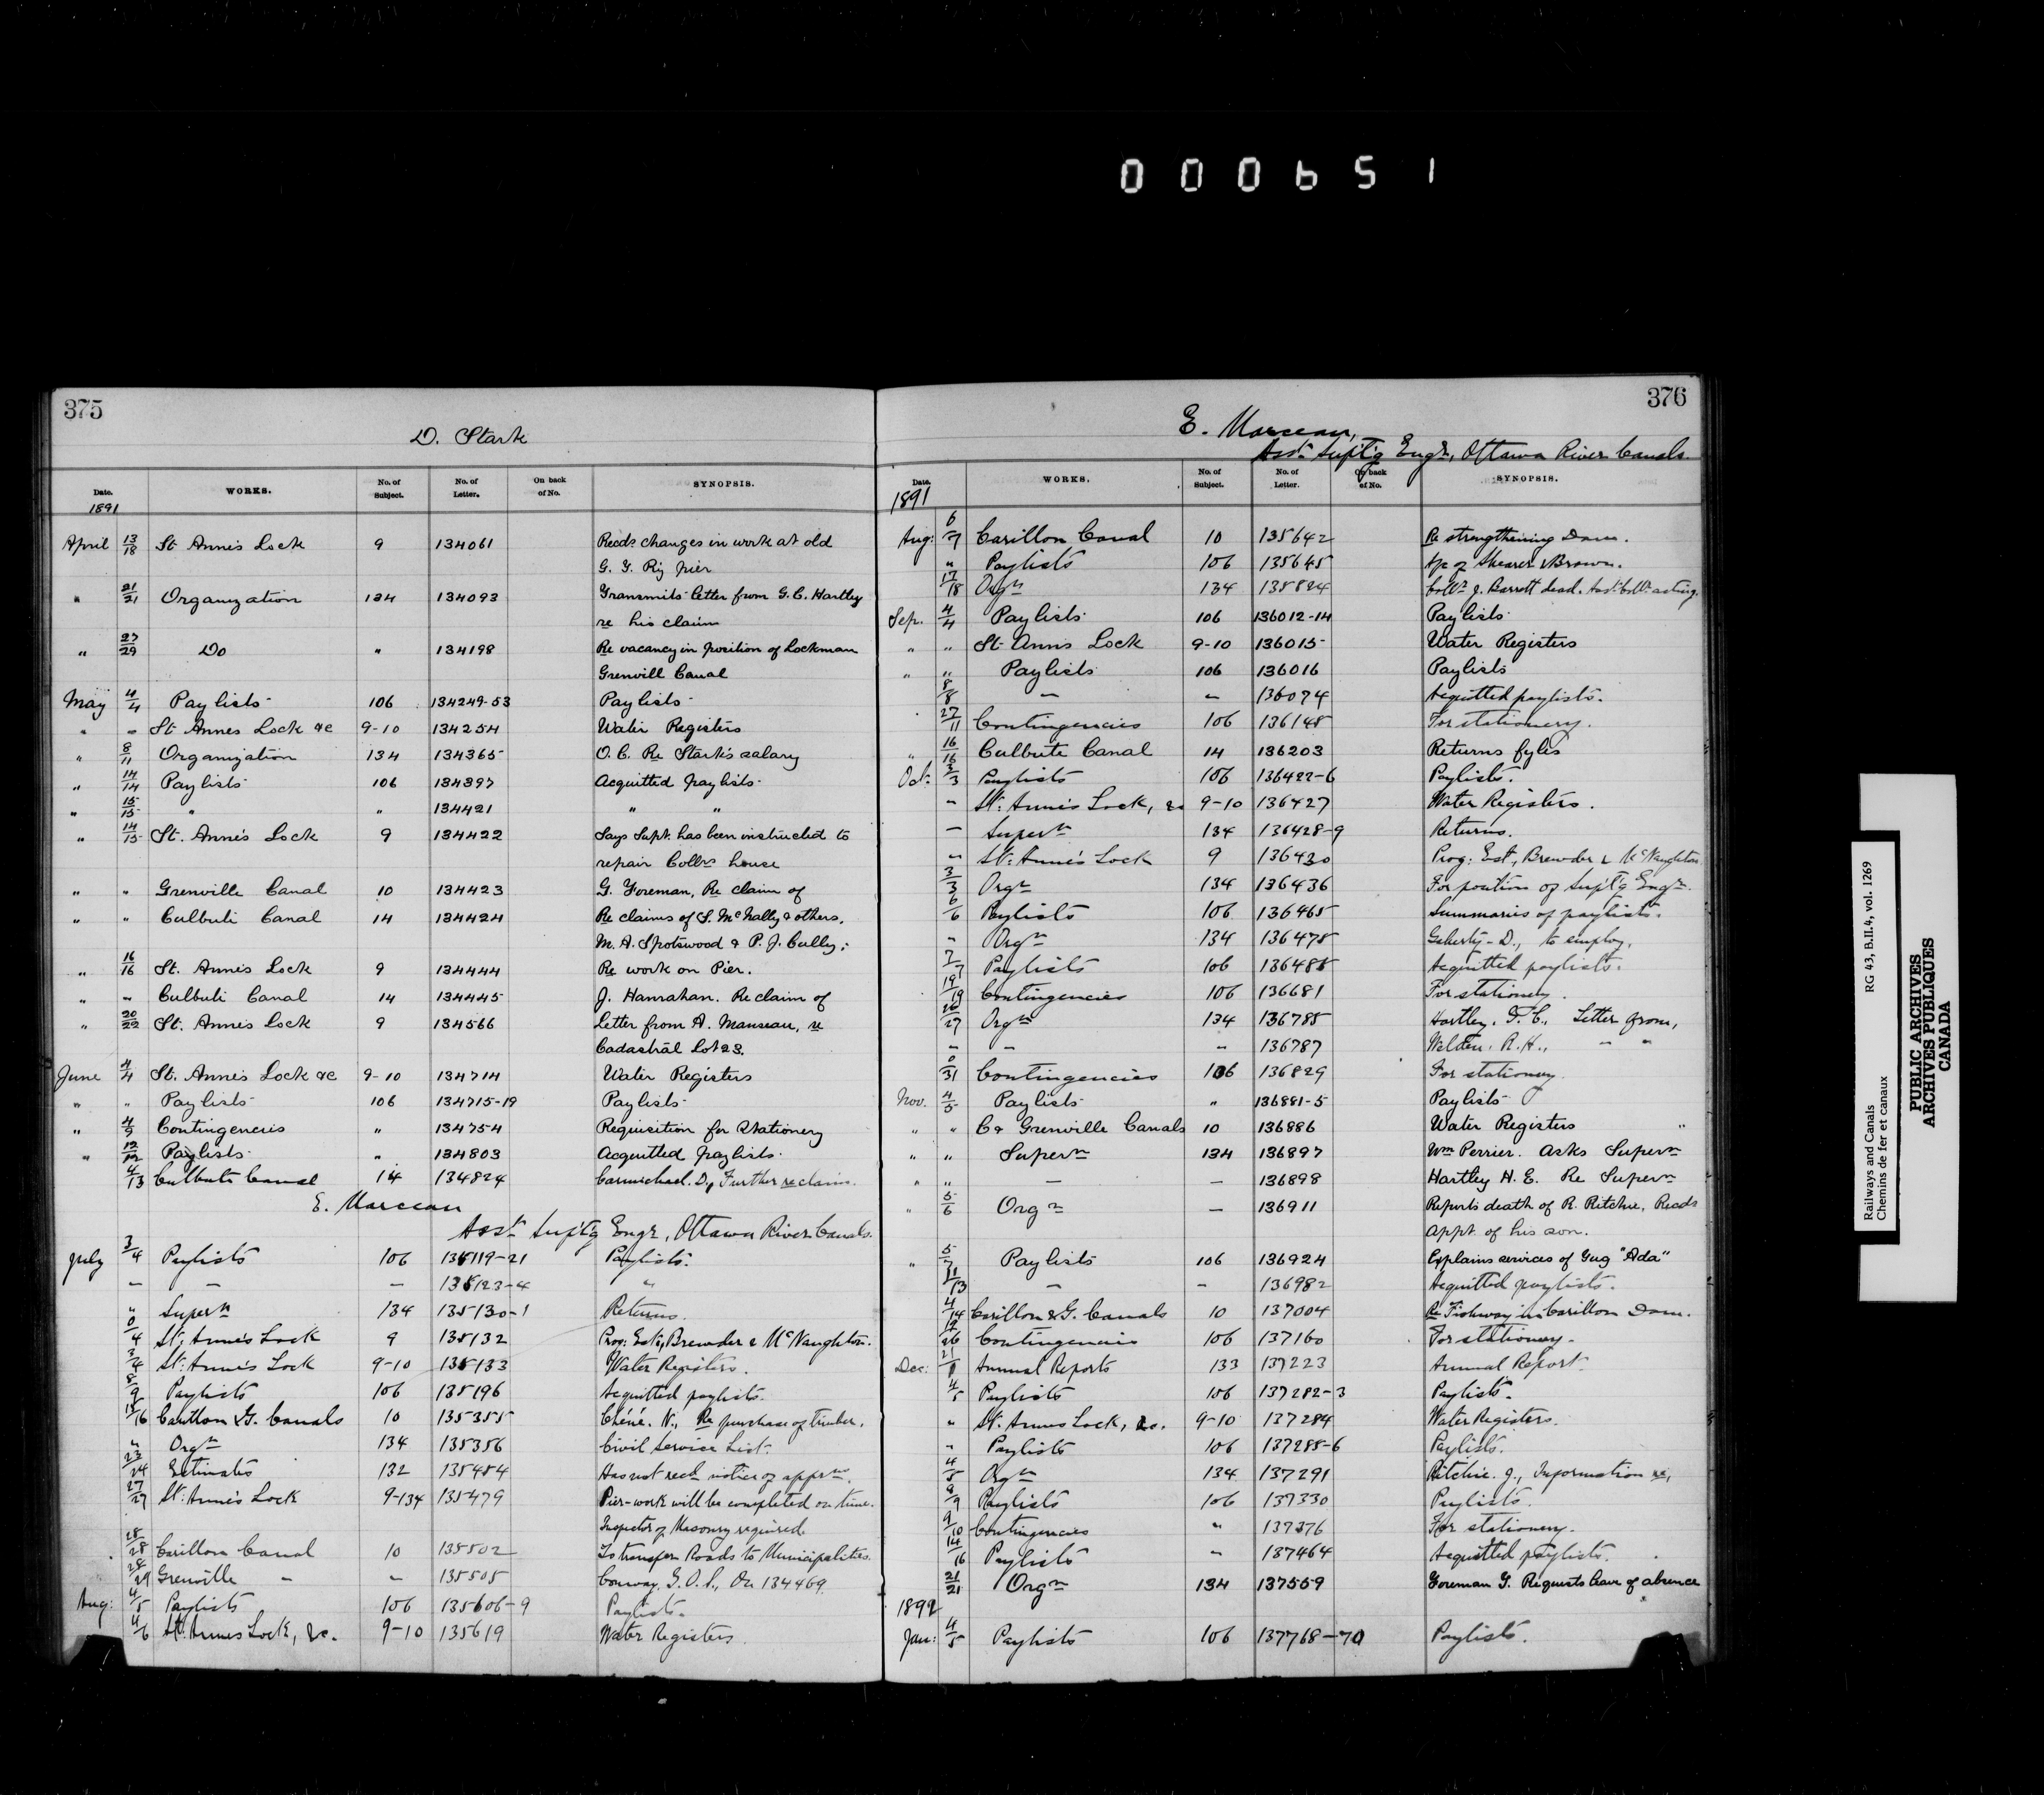 000651
375
D. Stark
Date. WORKS. No. of Subject. No. of Letter. On back of No. SYNOPSIS.
1891
April 13/18 St Anne's Lock 9 134061 Recds changes in work at old
G. Y. Rig pier
" 21/21 Organization 134 134093 Transmits letter from G. C. Hartley
re his claim
" 27/29 Do " 134198 Re vacancy in position of Lockman
Grenvill Canal
May 4/4 Paylists 106 134249-53 Paylists
" " St Annes Lock &c 9-10 134254 Water Registers
" 8/11 Organization 134 134365 O. C. Re Stark's salary
" 14/14 Paylists 106 134397 Acquitted paylists
" 15/15 " " 134421 " "
" 14/15 St. Anne's Lock 9 134422 Says Supt. has been instructed to
repair Collrs house
" " Grenville Canal 10 134423 G. Foreman, Re claim of
" " Culbuti Canal 14 134424 Re claims of S. McNally & others,
M. A. Spotswood & P. J. Cully;
" 16/16 St. Anne's Lock 9 134444 Re work on Pier.
" " Culbuti Canal 14 134445 J. Hanrahan. Re claim of
" 20/22 St. Anne's Lock 9 134566 Letter from A. Manseau, re
Cadastral Lot 23.
June 4/4 St. Anne's Lock &c 9-10 134714 Water Registers
" " Paylists 106 134715-19 Paylists
" 4/9 Contingencies " 134754 Requisition for Stationery
" 12/12 Paylists " 134803 Acquitted paylists
4/13 Culbute Canal 14 134824 Carmichael. D, Further re claim.
E. Marceau
Asst Supt'g Engr, Ottawa River Canals.
July 3/4 Paylists 106 135119-21 Paylists.
— — — 135123-4 "
" Supern 134 135130-1 Returns.
0/4 St: Anne's Lock 9 135132 Prog: Est, Brewder & McNaughton.
3/4 St: Anne's Lock 9-10 135133 Water Registers.
8/9 Paylists 106 135196 Acquitted paylists.
15/16 Carillon & G. Canals 10 135355 Chéné. N., Re purchase of timber.
" Orgn 134 135356 Civil Service List.
23/24 Estimates 132 135454 Has not recd notice of apprn.
27/27 St: Anne's Lock 9-134 135479 Pier-work will be completed on time.
Inspector of Masonry required.
28/28 Carillon Canal 10 135502 To transfer Roads to Municipalities.
28/29 Grenville — — 135505 Conway. G.O.S., On 134469.
Aug: 4/5 Paylists 106 135606-9 Paylists.
4/6 St. Annes Lock, &c. 9-10 135619 Water Registers
376
E. Marceau,
Asst Supt'g Engr, Ottawa River Canals.
Date. WORKS. No. of Subject. No. of Letter. On back of No. SYNOPSIS.
1891
Aug: 6/7 Carillon Canal 10 135642 Re strengthening Dam.
" Paylists 106 135645 A/c of Shearer & Brown.
17/18 Orgn 134 135824 Collr J. Barrett dead. Asst Collr acting.
Sep. 4/4 Paylists 106 136012-14 Paylists
" " St Anns Lock 9-10 136015 Water Registers
" " Paylists 106 136016 Paylists
8/8 — — 136074 Acquitted paylists.
27/11 Contingencies 106 136148 For stationery.
" 16/16 Culbute Canal 14 136203 Returns fyles
Oct: 3/3 Paylists 106 136422-6 Paylists.
" St: Anne's Lock, &c 9-10 136427 Water Registers.
— Supern 134 136428-9 Returns.
" St: Anne's Lock 9 136430 Prog: Est, Brewder & McNaughton
3/3 Orgn 134 136436 For position of Supt'g Engr.
6/6 Paylists 106 136465 Summaries of paylists.
" Orgn 134 136475 Geherty - D., to employ.
7/7 Paylists 106 136485 Acquitted paylists.
19/19 Contingencies 106 136681 For stationery.
26/27 Orgn 134 136785 Hartley. F. C., Letter from,
" — " 136787 Welden. R. H., — "
0/31 Contingencies 106 136829 For stationery.
Nov. 4/5 Paylists " 136881-5 Paylists
" " C & Grenville Canals 10 136886 Water Registers "
" " Supern 134 136897 Wm Perrier. Asks Supern
" " — — 136898 Hartley H. E. Re Supern
" 5/6 Orgn — 136911 Reports death of R. Ritchie. Recds
appt. of his son.
" 5/7 Paylists 106 136924 Explains services of Tug "Ada"
11/13 — — 136982 Acquitted paylists.
4/14 Carillon & G. Canals 10 137004 Re Fishway in Carillon Dam.
12/26 Contingencies 106 137160 For stationery.
Dec: 21/1 Annual Reports 133 137223 Annual Report
4/5 Paylists 106 137282-3 Paylists.
" St. Annes Lock, &c. 9-10 137284 Water Registers.
" Paylists 106 137285-6 Paylists.
4/5 Orgn 134 137291 Ritchie. J., Information re,
8/9 Paylists 106 137330 Paylists.
9/10 Contingencies " 137376 For stationery.
14/16 Paylists " 137464 Acquitted paylists.
21/21 Orgn 134 137559 Foreman G. Requests leave of absence
1892
Jan: 4/5 Paylists 106 137768-70 Paylists.
Railways and Canals RG 43, B.II.4, vol. 1269
Chemins de fer et canaux
PUBLIC ARCHIVES
ARCHIVES PUBLIQUES
CANADA